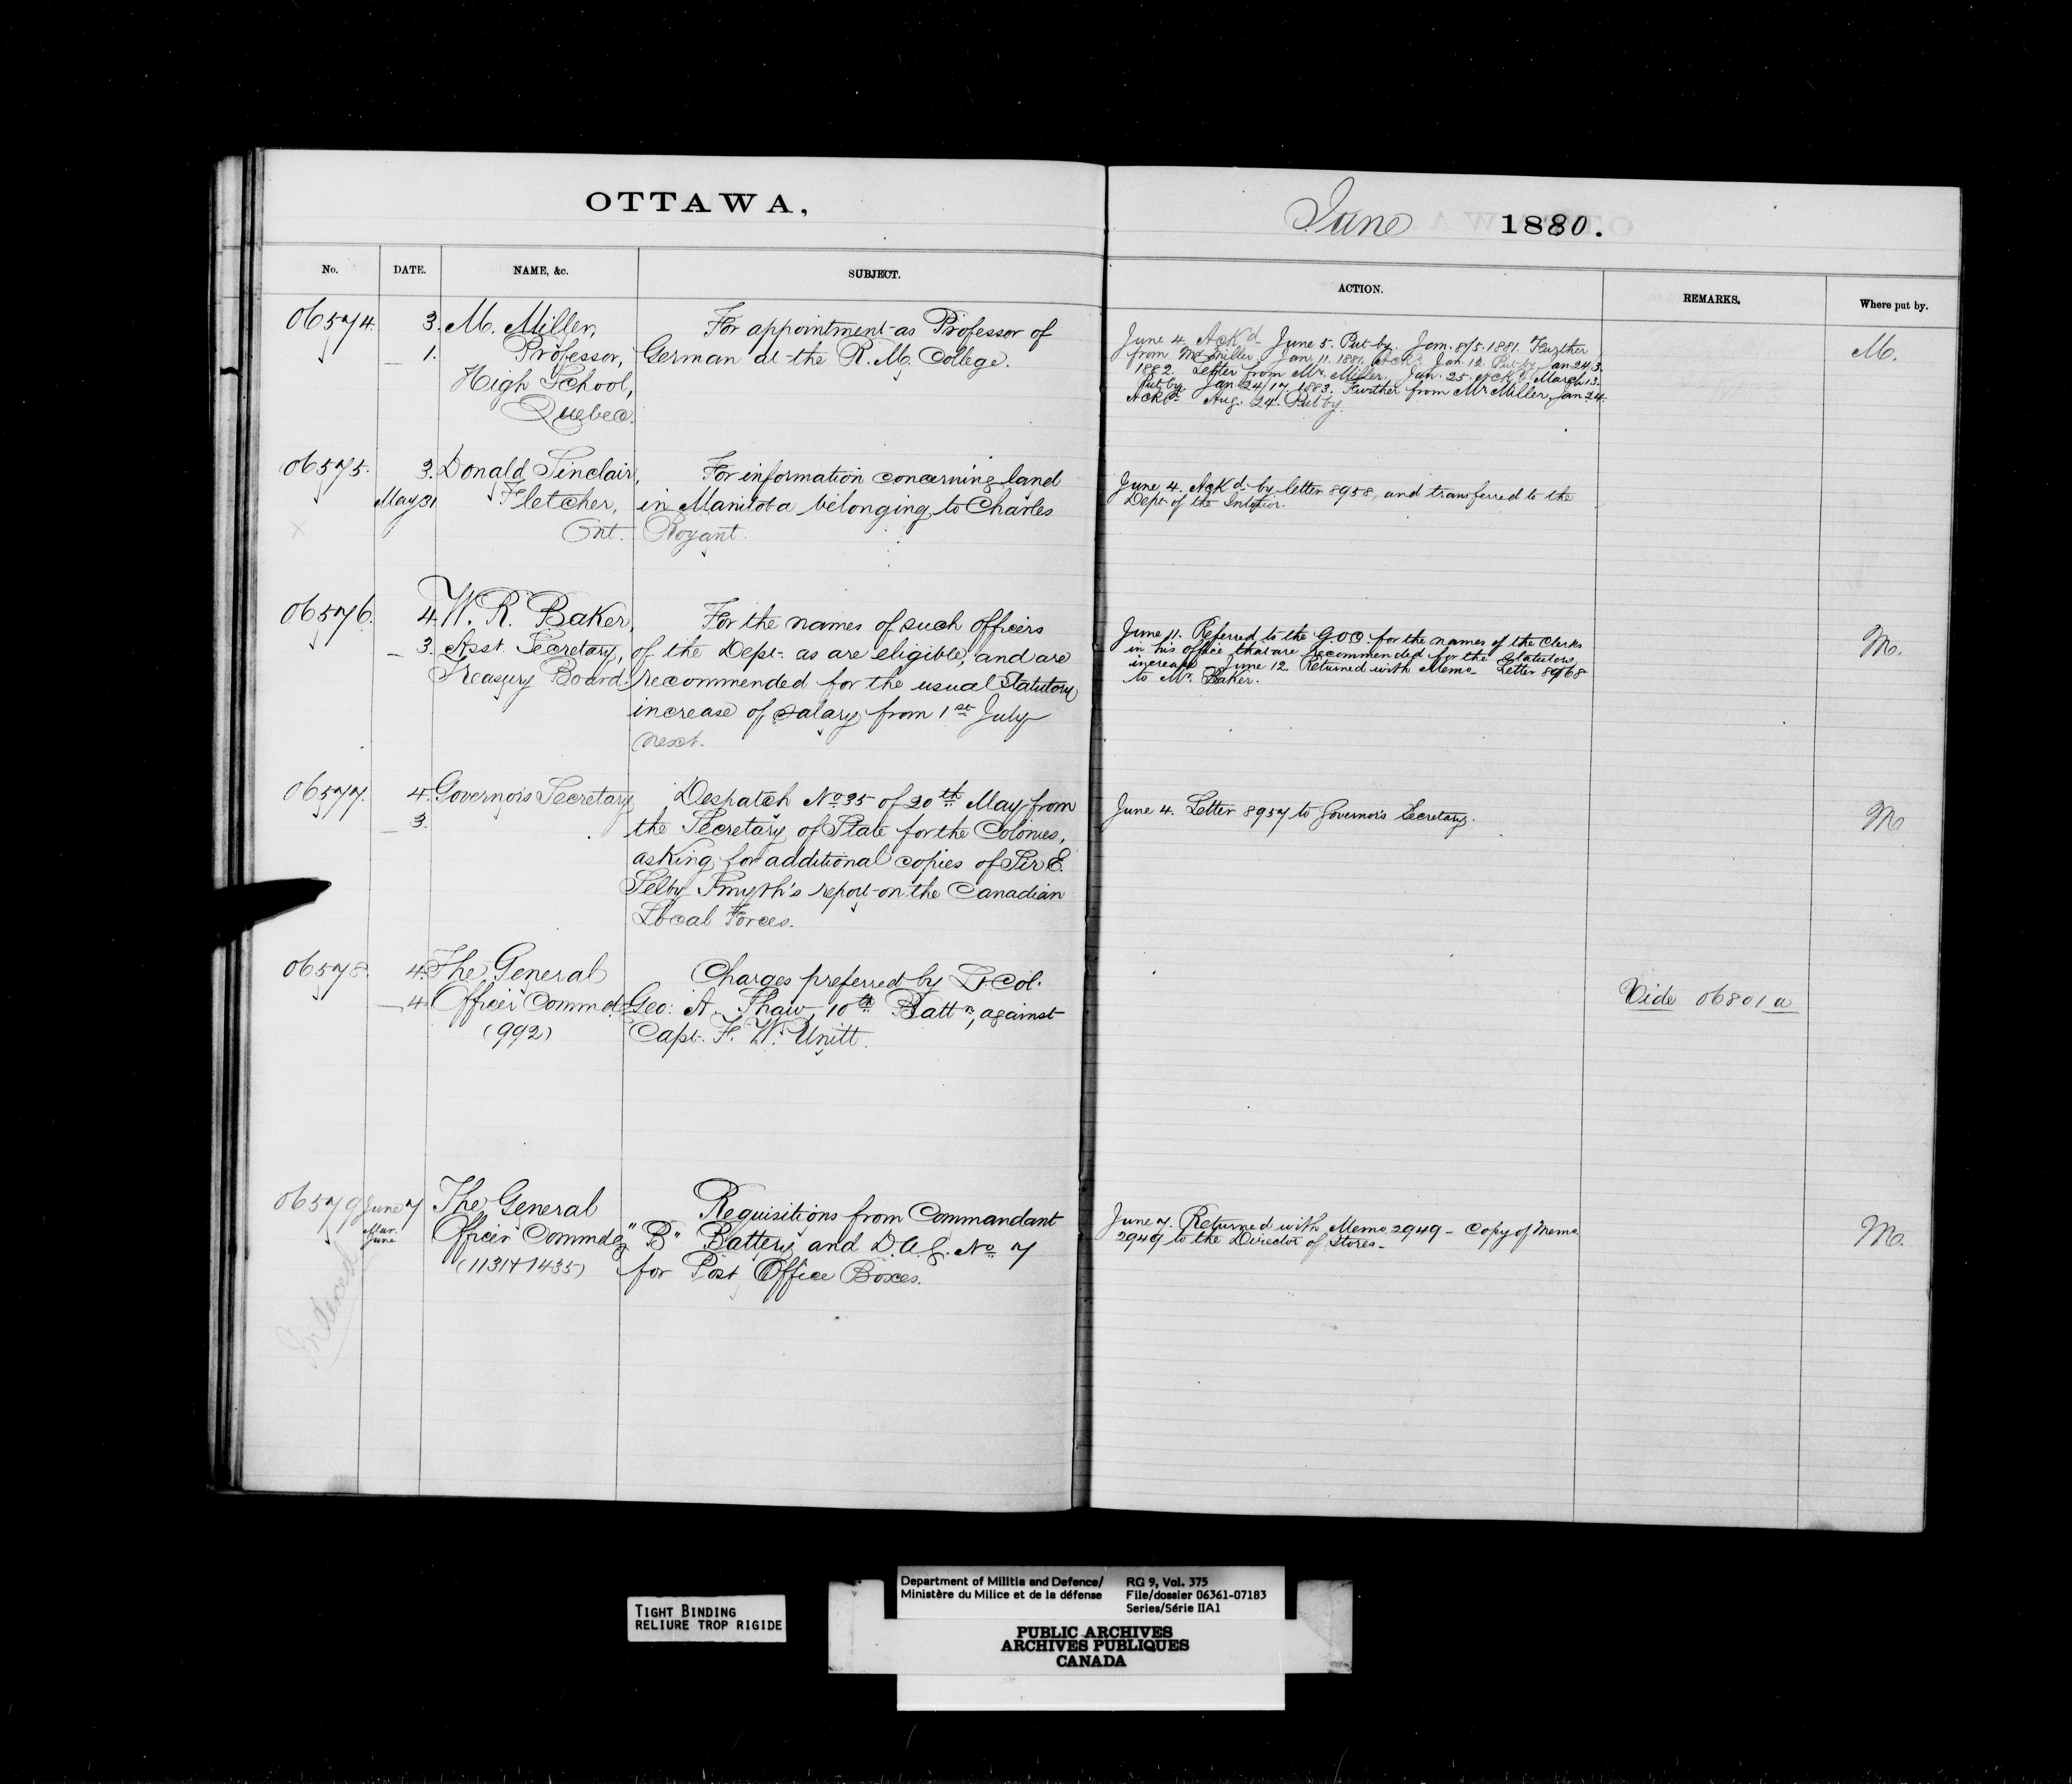 OTTAWA,
June 1880.
No.
DATE.
NAME, &c.
SUBJECT.
ACTION.
REMARKS.
Where put by.
06574.
3.
— 1.
M. Miller,
Professor,
High School,
Quebec.
For appointment as Professor of
German at the R. M. College.
June 4. Ack'd June 5. Put by. Jan. 8/5. 1881. Further
from Mr Miller Jan. 11. 1881. Ack'd Jan. 12. Put by Jan 24/3.
1882. Letter from Mr. Miller. Jan. 25. Ack'd March 13.
Put by. Jan 24/17 1883. Further from Mr Miller, Jan 24.
Ackd Aug. 24. Put by.
M.
06575.
3.
May 31
Donald Sinclair,
Fletcher,
Ont.
For information concerning land
in Manitoba belonging to Charles
Bryant.
June 4. Ack'd by letter 8958, and transferred to the
Dept. of the Interior.
x
06576.
4.
— 3.
W. R. Baker,
Asst. Secretary,
Treasury Board.
For the names of such officers
of the Dept. as are eligible, and are
recommended for the usual Statutory
increase of salary from 1st July
next.
June 11. Referred to the G.O.C. for the names of the Clerks
in his office that are recommended for the Statutory
increase — June 12. Returned with Memo — Letter 8968
to Mr. Baker.
M.
06577.
4.
— 3.
Governor's Secretary
Despatch No 35 of 20th May from
the Secretary of State for the Colonies,
asking for additional copies of Sir E.
Selby Smyth's report on the Canadian
Local Forces.
June 4. Letter 8957 to Governor's Secretary.
M
06578.
4.
— 4
The General
Officer Commdg
(992)
Charges preferred by Lt. Col.
Geo: A. Shaw, 10th Battn, against
Capt. F. W. Unitt.
Vide 06801 a
06579
June 7
Mar.
June
The General
Officer Commdg
(1131 + 1435)
Requisitions from Commandant
"B" Battery and D.A.G. No 7
for Post Office Boxes.
June 7. Returned with Memo. 2949 — Copy of Memo.
2949 to the Director of Stores —
M.
Indexed
TIGHT BINDING
RELIURE TROP RIGIDE
Department of Militia and Defence/
Ministère du Milice et de la défense
RG 9, Vol. 375
File/dossier 06361-07183
Series/Série IIA1
PUBLIC ARCHIVES
ARCHIVES PUBLIQUES
CANADA